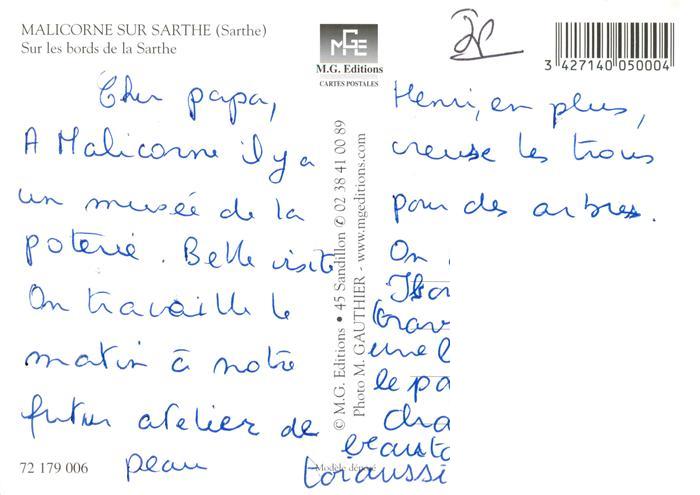 MALICORNE SUR SARTHE (Sarthe)
Sur les bords de la Sarthe
MGE
M.G. Editions
CARTES POSTALES
3 427140 050004
Cher papa,
A Malicorne il y a
un musée de la
poterie. Belle visite
On travaille le
matin à notre
futur atelier de
peau
© M.G. Editions • 45 Sandillon ✆ 02 38 41 00 89
Photo M. GAUTHIER - www.mgeditions.com
Modèle déposé
Henri, en plus,
creuse les trous
pour des arbres.
On
une
le pa
72 179 006